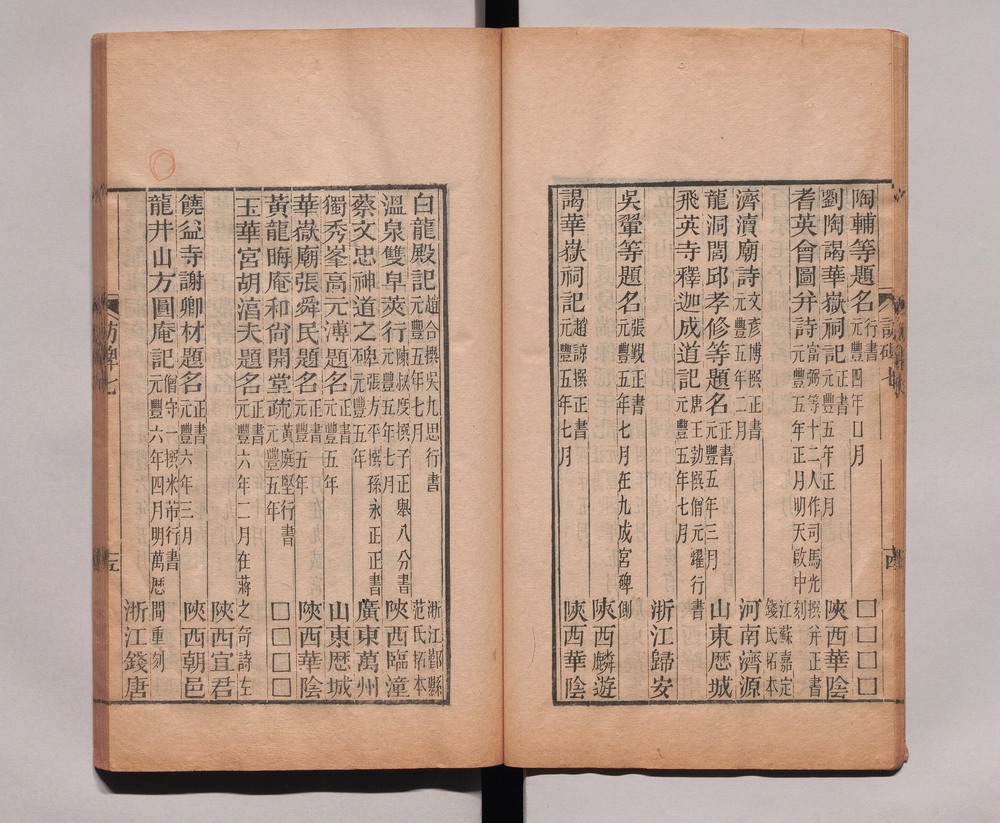 陶輔等題名行書元豐四年□月□□□□
劉陶謁華嶽祠記正書元豐五年正月陝西華陰
耆英會圖并詩富弼等十二人作司馬光撰并正書元豐五年正月明天啟中刻江蘇嘉定錢氏拓本
濟瀆廟詩文彥博撰正書元豐五年二月河南濟源
龍洞閭邱孝修等題名正書元豐五年三月山東歷城
飛英寺釋迦成道記唐王勃撰僧元耀行書元豐五年七月浙江歸安
吳翬等題名張觀正書元豐五年七月在九成宮碑側陝西麟遊
謁華嶽祠記趙諒撰正書元豐五年七月陝西華陰
白龍殿記趙合撰吳九思行書元豐五年七月浙江鄞縣范氏拓本
溫泉雙皁莢行陳叔度撰子正舉八分書元豐五年七月陝西臨潼
蔡文忠神道之碑張方平撰孫永正正書元豐五年廣東萬州
獨秀峯高元溥題名正書元豐五年山東歷城
華嶽廟張舜民題名正書元豐五年陝西華陰
黃龍晦庵和尙開堂疏黃庭堅行書元豐五年□□□□
玉華宮胡淯夫題名正書元豐六年二月在蔣之奇詩左陝西宜君
饒益寺謝卿材題名正書元豐六年三月陝西朝邑
龍井山方圓庵記僧守一撰米芾行書元豐六年四月明萬歷間重刻浙江錢唐
訪碑七
左